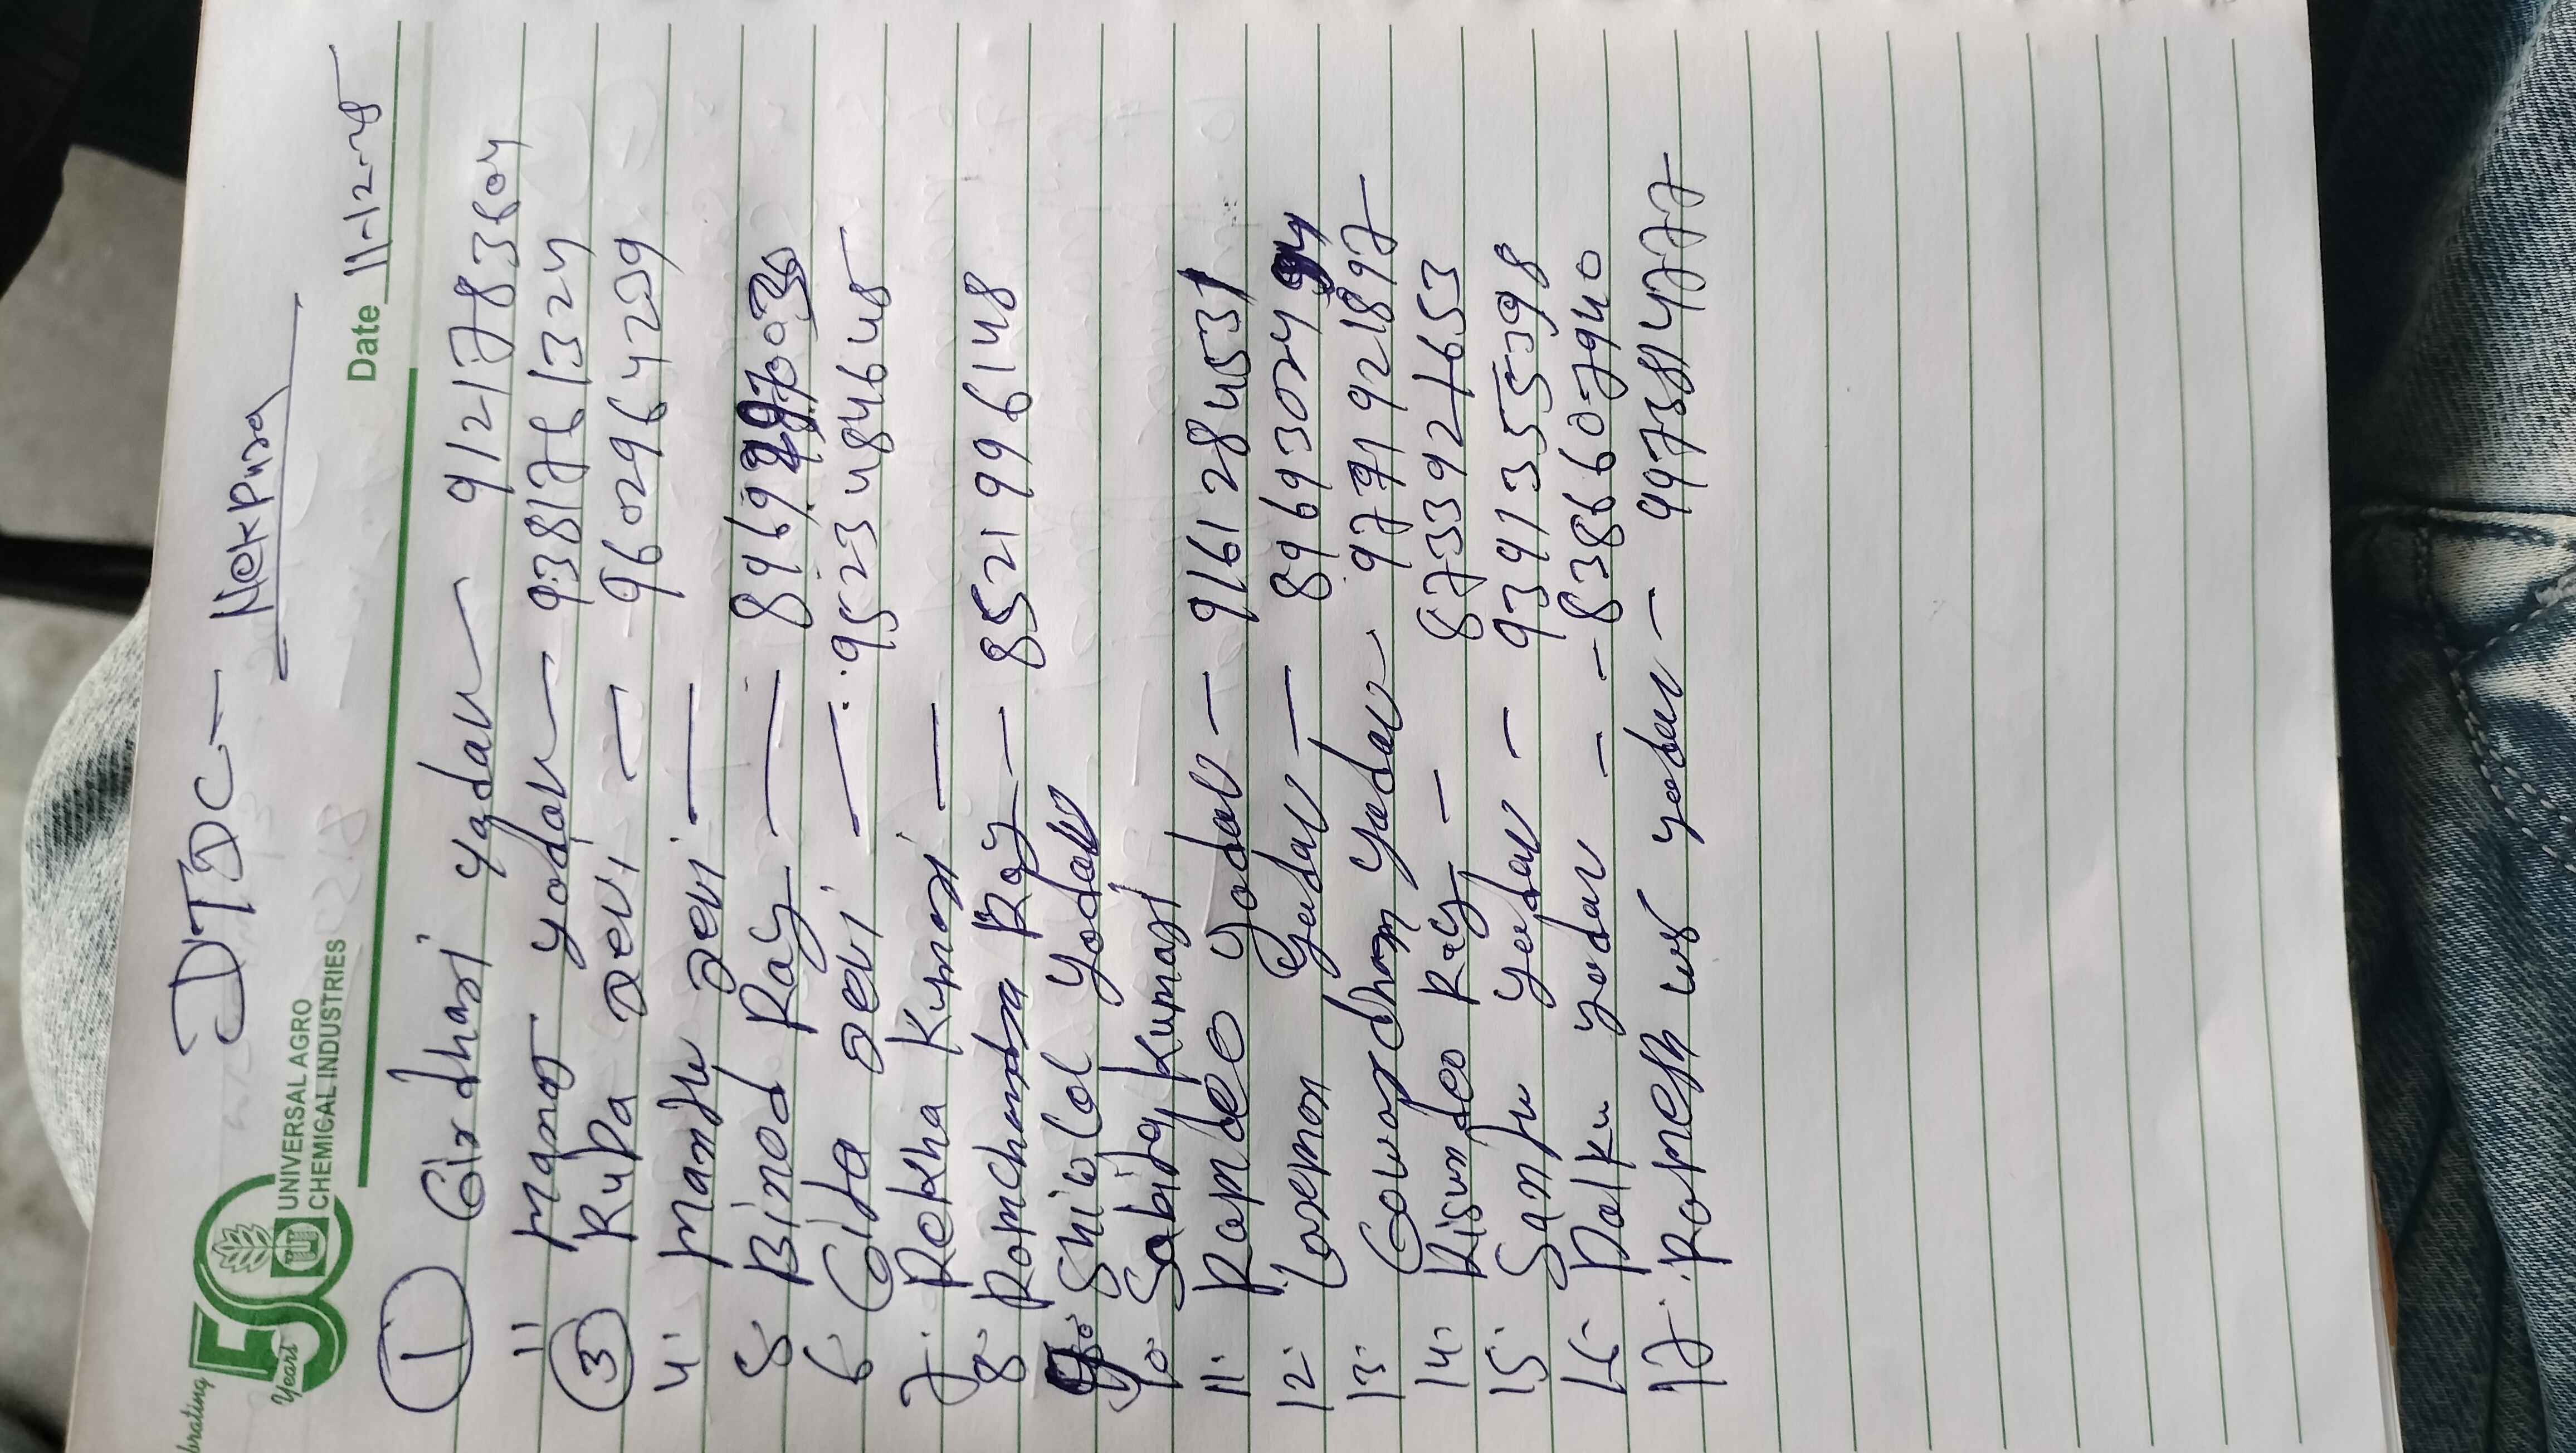 DTDC —
Celebrating
50
Years
UNIVERSAL AGRO
CHEMICAL INDUSTRIES
Nekpura
Date 11-12-25
1 Girdhari Yadav — 9121783604
11 manor yodav — 9381761324
3 RuPa Devi — 9602964259
4. manju Devi —
5. Binod Ray — 8969
6. Gita Devi — 9523484645
7. Rekha Kumari —
8. Ramchandra Ray — 8521996148
Shiv lal Yodav
10. Sabita Kumari
11. Ramdeo Yodav — 9161284531
12. Laxman Yadav — 8969302494
13. Gowardhan Yadav 9779921897
14. Kisundeo Ray — 8733921653
15. Sanju Yadav — 9391355398
16. Palku yadav — 8386607940
17. Ramesh wr yadav — 9973814777